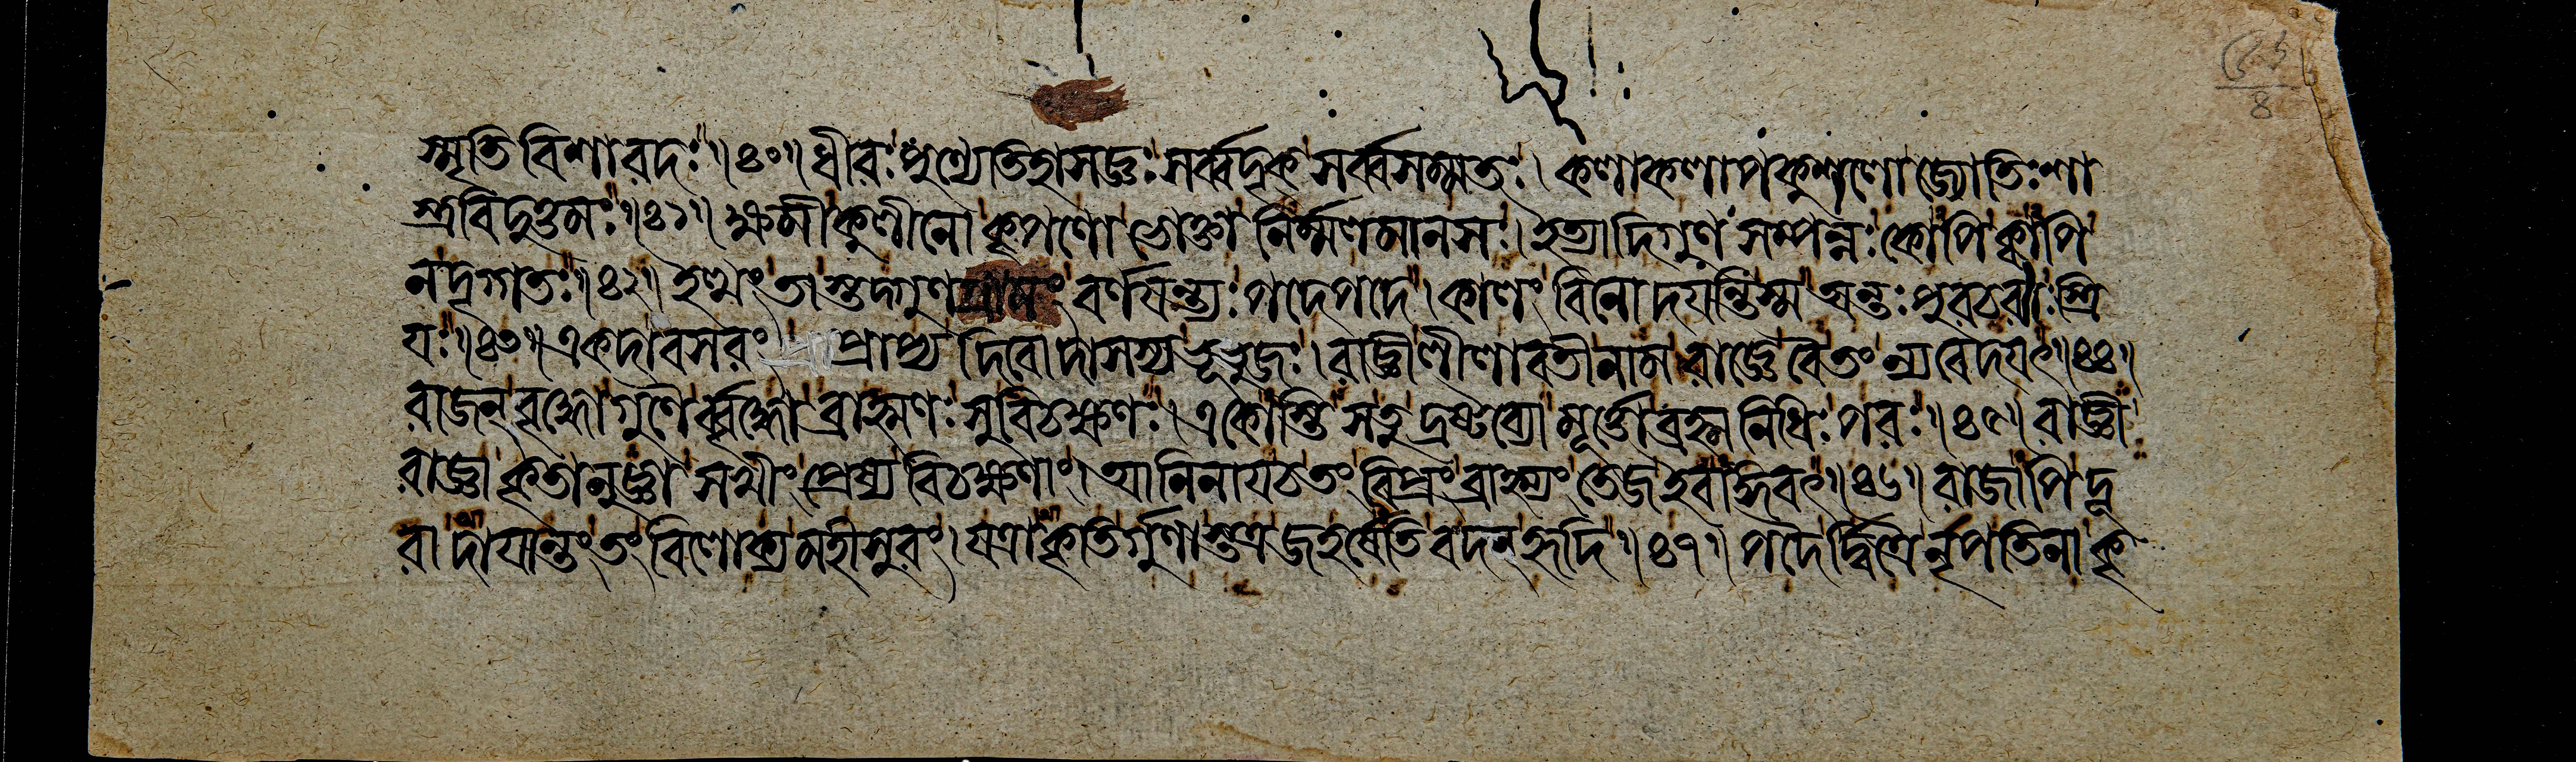 স্মৃতিবিশারদঃ॥৪০॥ধীরঃপুণ্যেতিহাসজ্ঞঃসর্ব্বদৃক্সর্ব্বসম্মতঃ।কলাকলাপকুশলোজ্যোতিঃশা
স্ত্রবিদুত্তমঃ॥৪১॥ক্ষমীকুলীনোকৃপণোভোক্তানির্ম্মলমানসঃ।ইত্যাদিগুণসম্পন্নঃকোপিক্বাপি
নদৃগ্গতঃ॥৪২॥ইত্থংতাস্তদ্গুণগ্রামংবর্ণয়ন্ত্যঃপদেপদে।কালংবিনোদয়ন্তিস্মঅন্তঃপুরচরাঃস্ত্রি
য়ঃ॥৪৩॥একদাবসরংপ্রাপ্যদিবোদাসস্যভূভুজঃ।রাজ্ঞীলীলাবতীনামরাজ্ঞেবেতংন্যবেদয়ৎ॥৪৪॥
রাজন্বৃদ্ধোগুণৈর্ব্বৃদ্ধোব্রাহ্মণঃসুবিচক্ষণঃ।একোস্তিসতুদ্রষ্টব্যোমূর্ত্তোব্রহ্মনিধিঃপরঃ॥৪৫॥রাজ্ঞী
রাজ্ঞাকৃতানুজ্ঞাসখীংপ্রেষ্যবিচক্ষণাং।আনিনায়চতংবিপ্রংব্রাহ্ম্যংতেজইবাঙ্গিবৎ॥৪৬॥রাজাপিদূ
রাদায়ান্তংতংবিলোক্যমহীসুরং।যত্রাকৃতির্গুণাস্তত্রজহর্ষেতিবদন্হৃদি॥৪৭॥পদৈর্দ্বিত্রৈর্নৃপতিনাকৃ